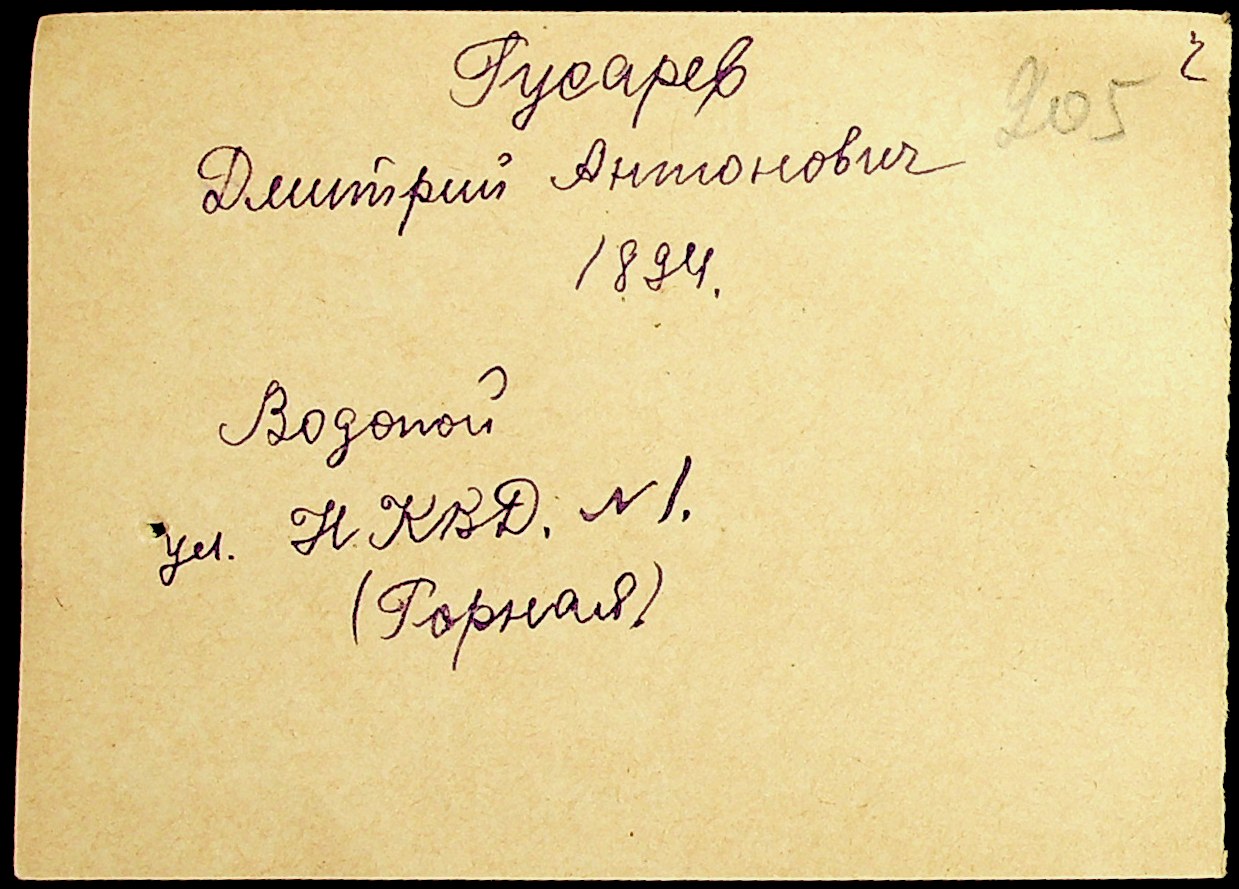 Гусарев
205
Дмитрий Антонович
1894.
Водопой
ул. Н.КВД. N 1.
(Горная)